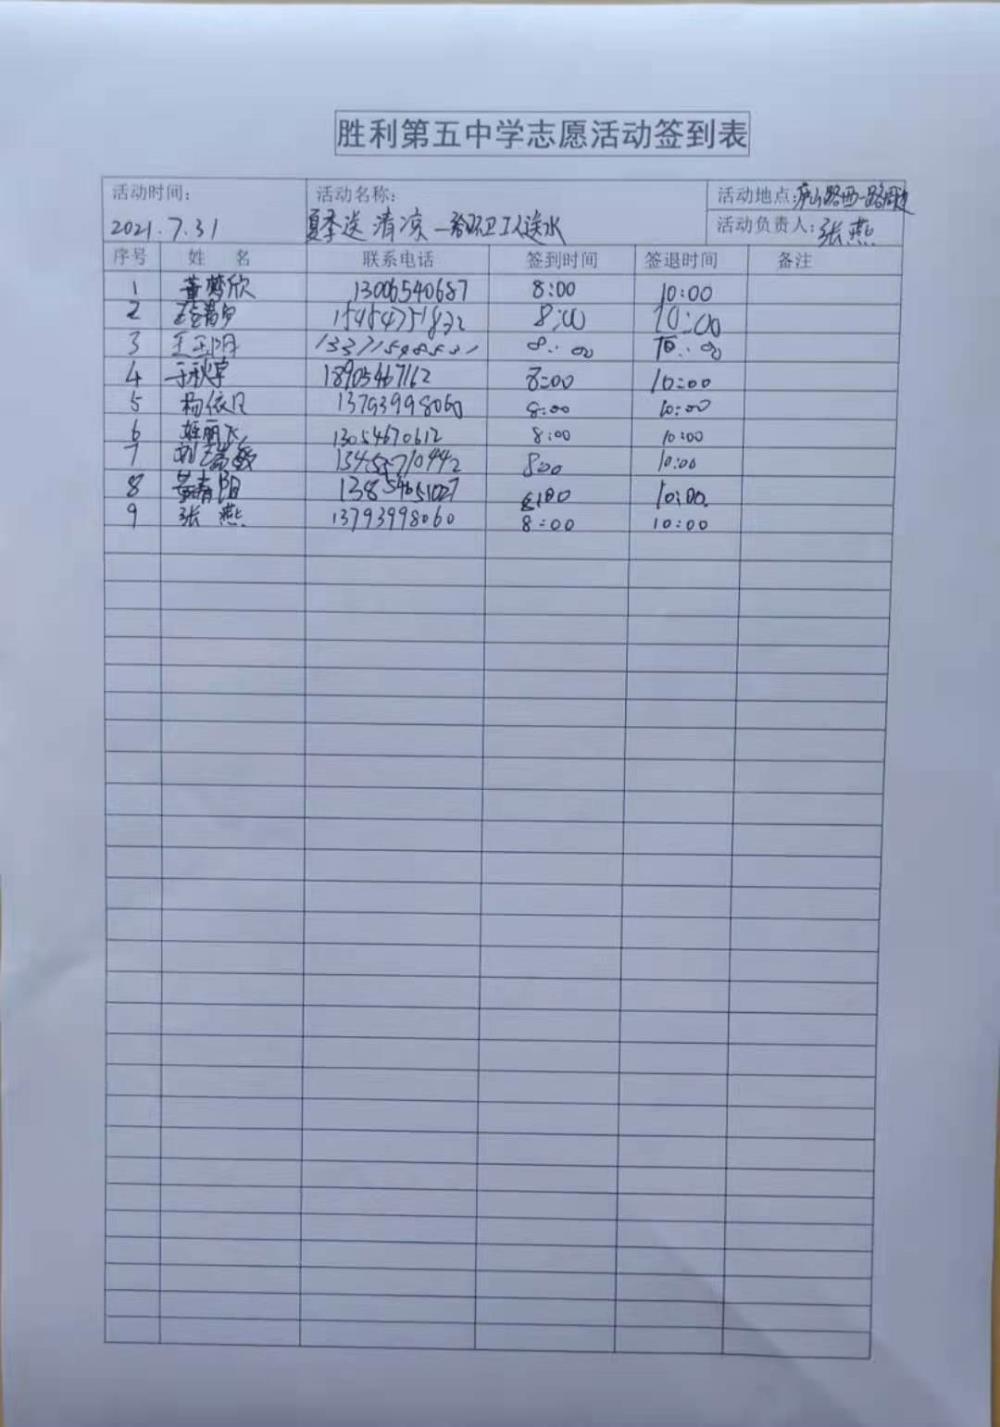 胜利第五中学志愿活动签到表
活动时间: 活动名称: 活动地点:庐山路西一路周边
2021.7.31 夏季送清凉—给环卫工人送水 活动负责人:张燕
序号 姓 名 联系电话 签到时间 签退时间 备注
1 董梦欣 13006540687 8:00 10:00
2 8:00 10:00
3 王玉明 8:00 10:00
4 于秋宇 18905467162 8:00 10:00
5 杨依凡 13793998060 8:00 10:00
6 13054670612 8:00 10:00
7 13455710442 800 10:00
8 13854651027 8:00 10:00
9 张 燕 13793998060 8:00 10:00